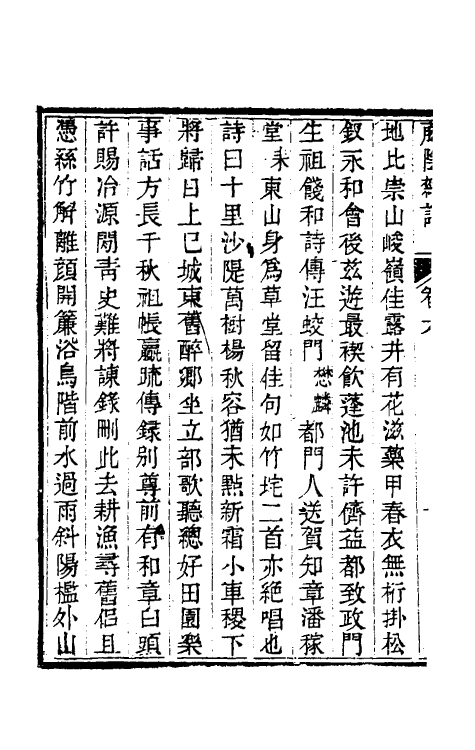 藤陰雜記 卷六
地比崇山峻嶺佳露井有花滋藥甲春衣無桁掛松
釵永和會後兹遊最禊飲蓬池未許儕益都致政門
生祖餞和詩傳汪蛟門懋麟都門人送賀知章潘稼
堂耒東山身爲草堂留佳句如竹垞二首亦絶唱也
詩曰十里沙隄萬樹楊秋容猶未點新霜小車稷下
將歸日上巳城東舊醉鄉坐立部歌聽總好田園樂
事話方長千秋祖帳嬴疏傳録别尊前有和章白頭
許賜冶源閒靑史難將諫錢刪此去耕漁尋舊侶且
憑絲竹解離顔開簾浴鳥階前水過雨斜陽檻外山